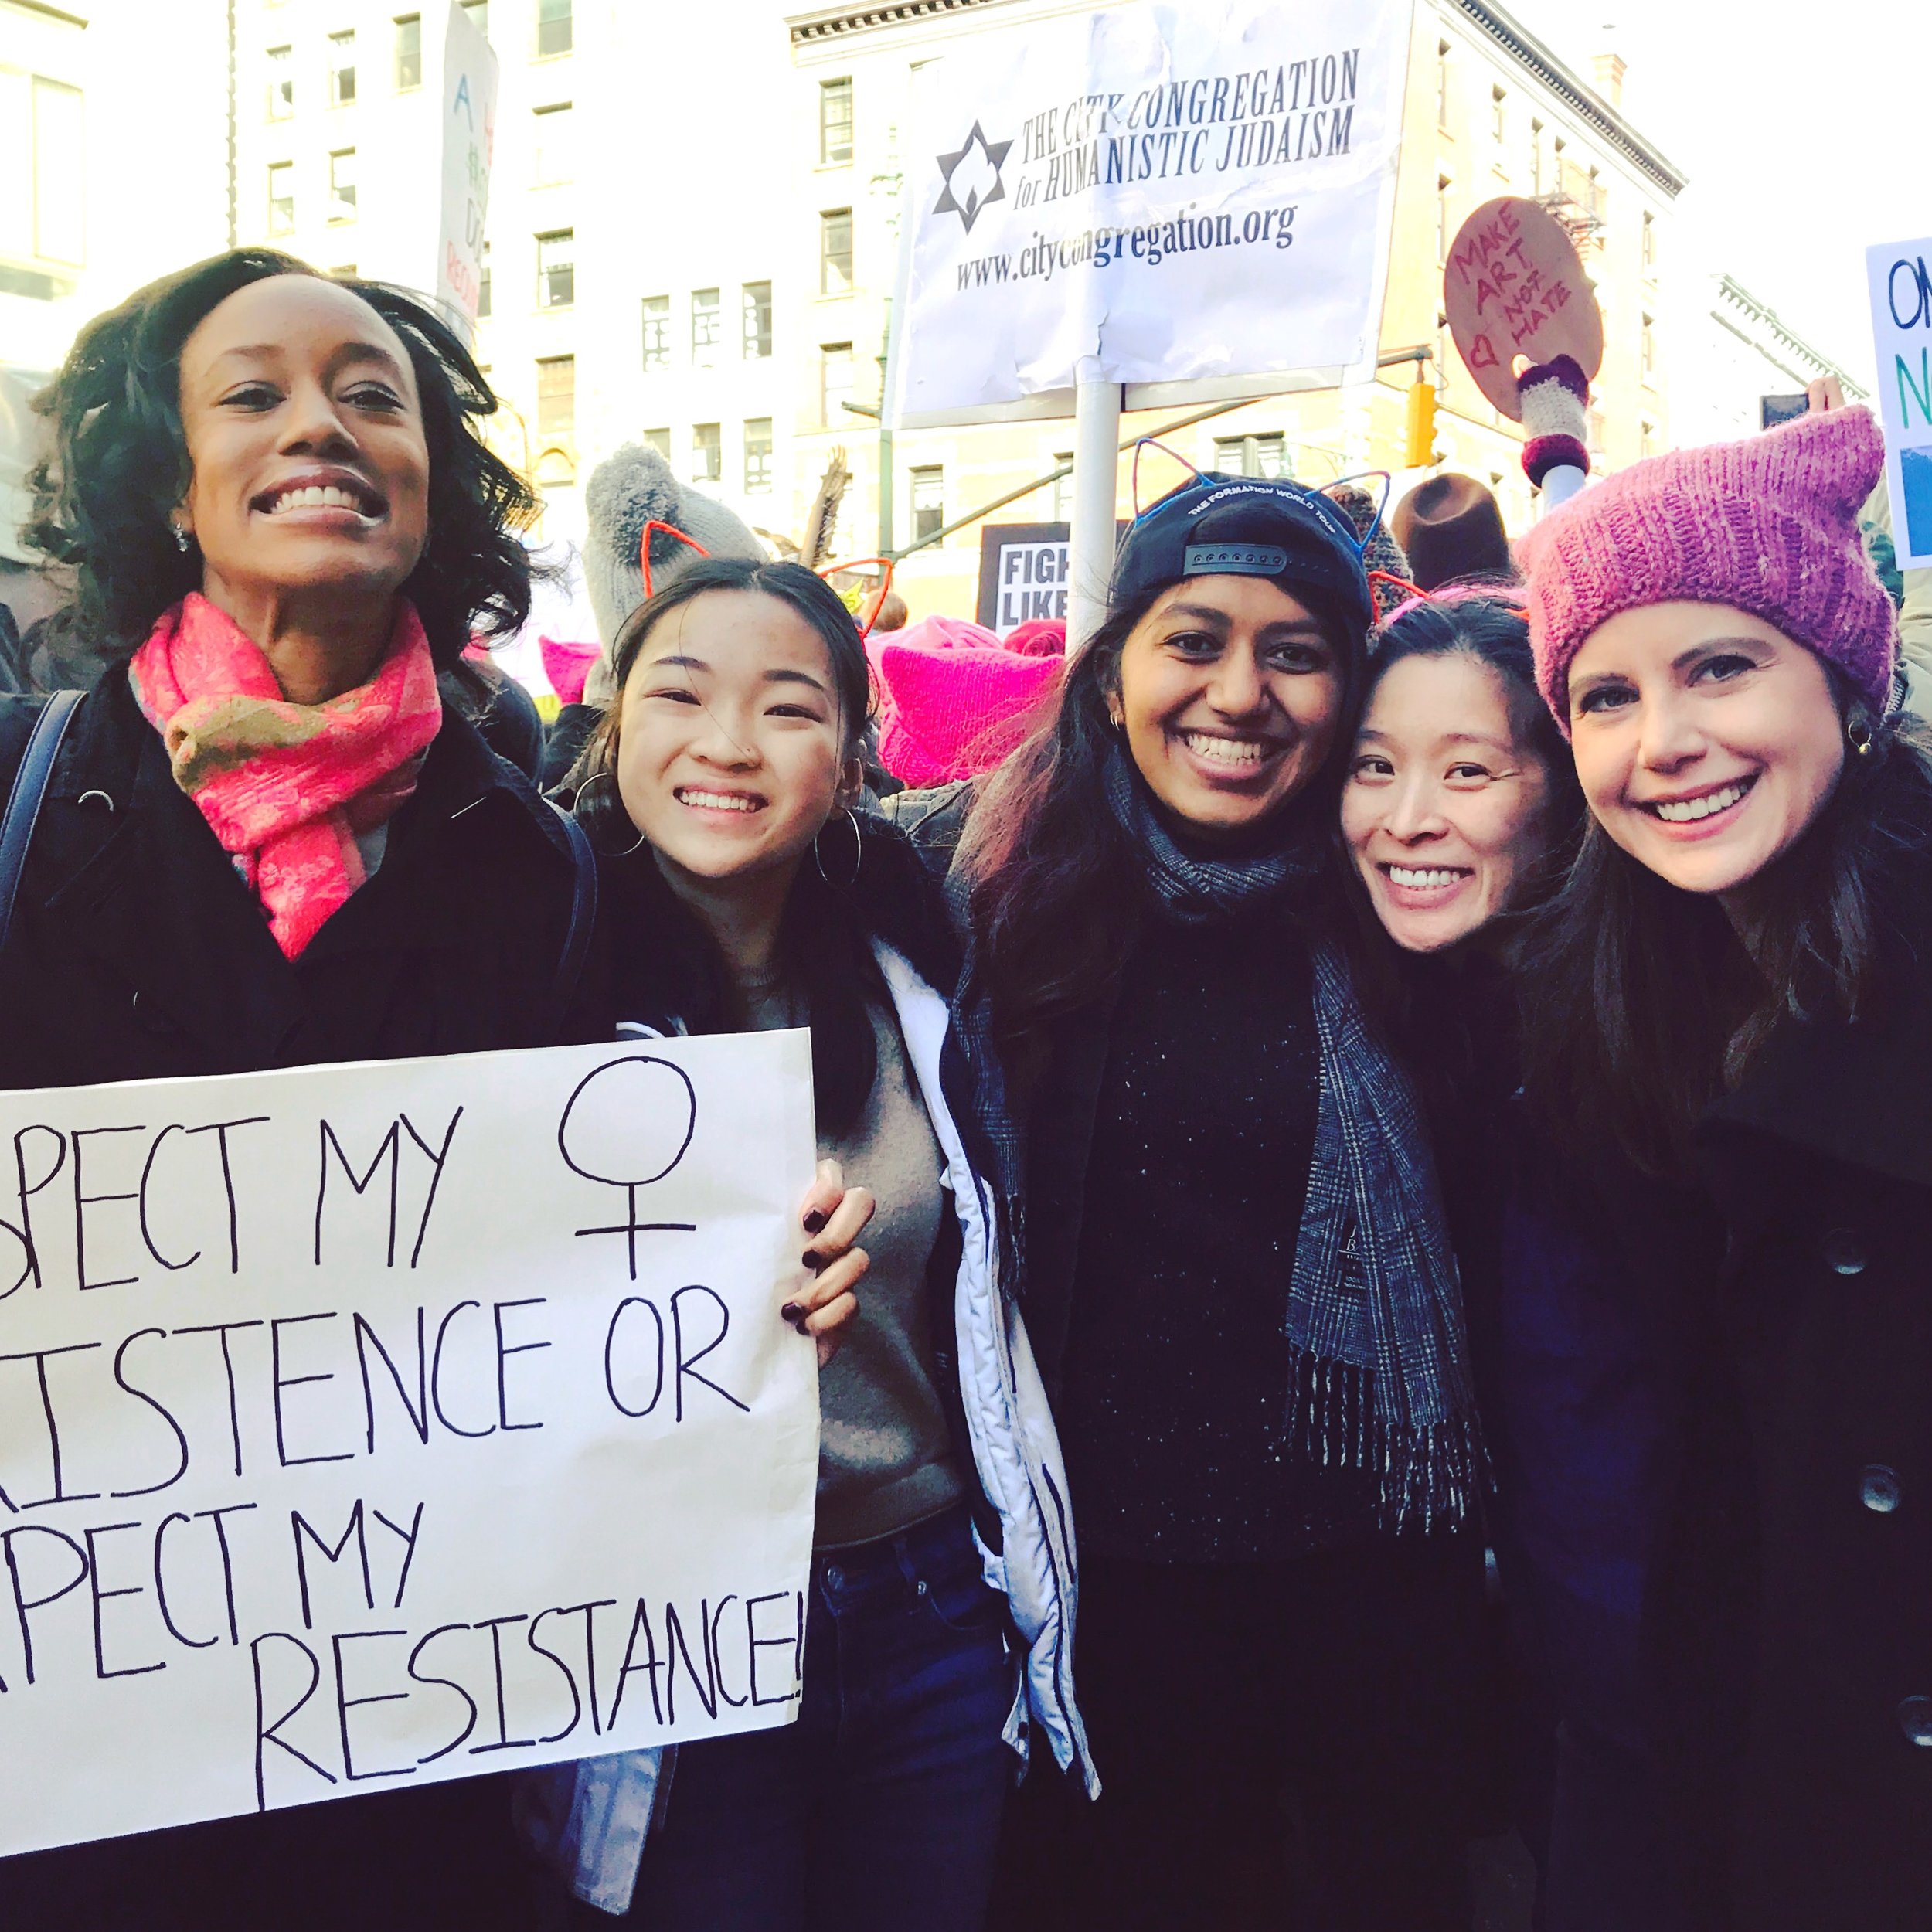 THE CITY CONGREGATION
for HUMANISTIC JUDAISM
www.citycongregation.org
MAKE
ART
NOT
HATE
THE FORMATION WORLD TOUR
FIGH
LIKE
ON
N
A
SPECT MY
ISTENCE OR
PECT MY
RESISTANCE!